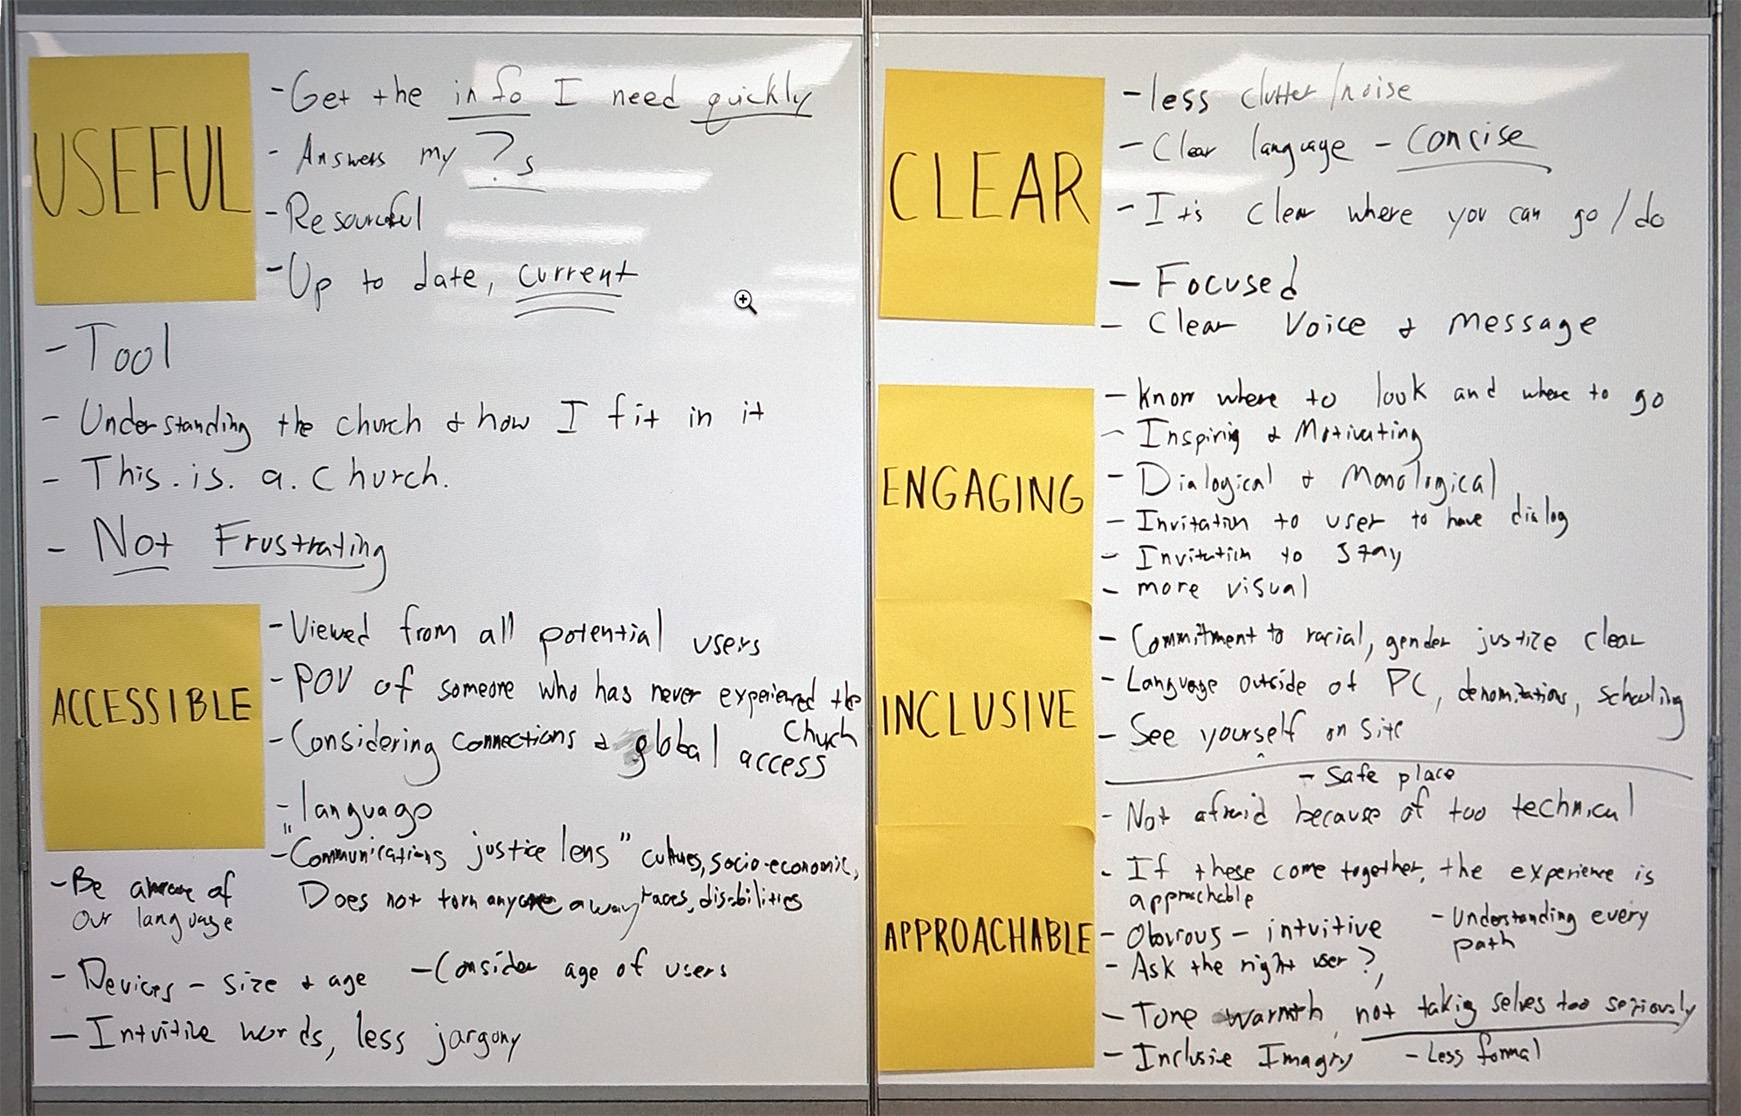 USEFUL
- Get the info I need quickly
- Answers my ?s
- Resourceful
- Up to date, current
- Tool
- Understanding the church & how I fit in it
- This. is. a. church.
- Not Frustrating
ACCESSIBLE
- Viewed from all potential users
- POV of someone who has never experienced the
Church
- Considering connections & global access
- language
- "Communications justice lens" cultures, socio-economic,
races, disabilities
Does not turn anyone away
- Be aware of
our language
- Devices - size & age
- Consider age of users
- Intuitive words, less jargony
CLEAR
- less clutter/noise
- Clear language - concise
- It's clear where you can go/do
- Focused
- Clear Voice & message
ENGAGING
- know where to look and where to go
- Inspiring & Motivating
- Dialogical & Monological
- Invitation to user to have dialog
- Invitation to stay
- more visual
INCLUSIVE
- Commitment to racial, gender justize clear
- Language outside of PC, denominations, schooling
- See yourself on site
- Safe place
APPROACHABLE
- Not afraid because of too technical
- If these come together, the experience is
approachable
- Obvious - intuitive
- Understanding every
path
- Ask the right user ?,
- Tone warmth, not taking selves too seriously
- Inclusive Imagry
- Less formal